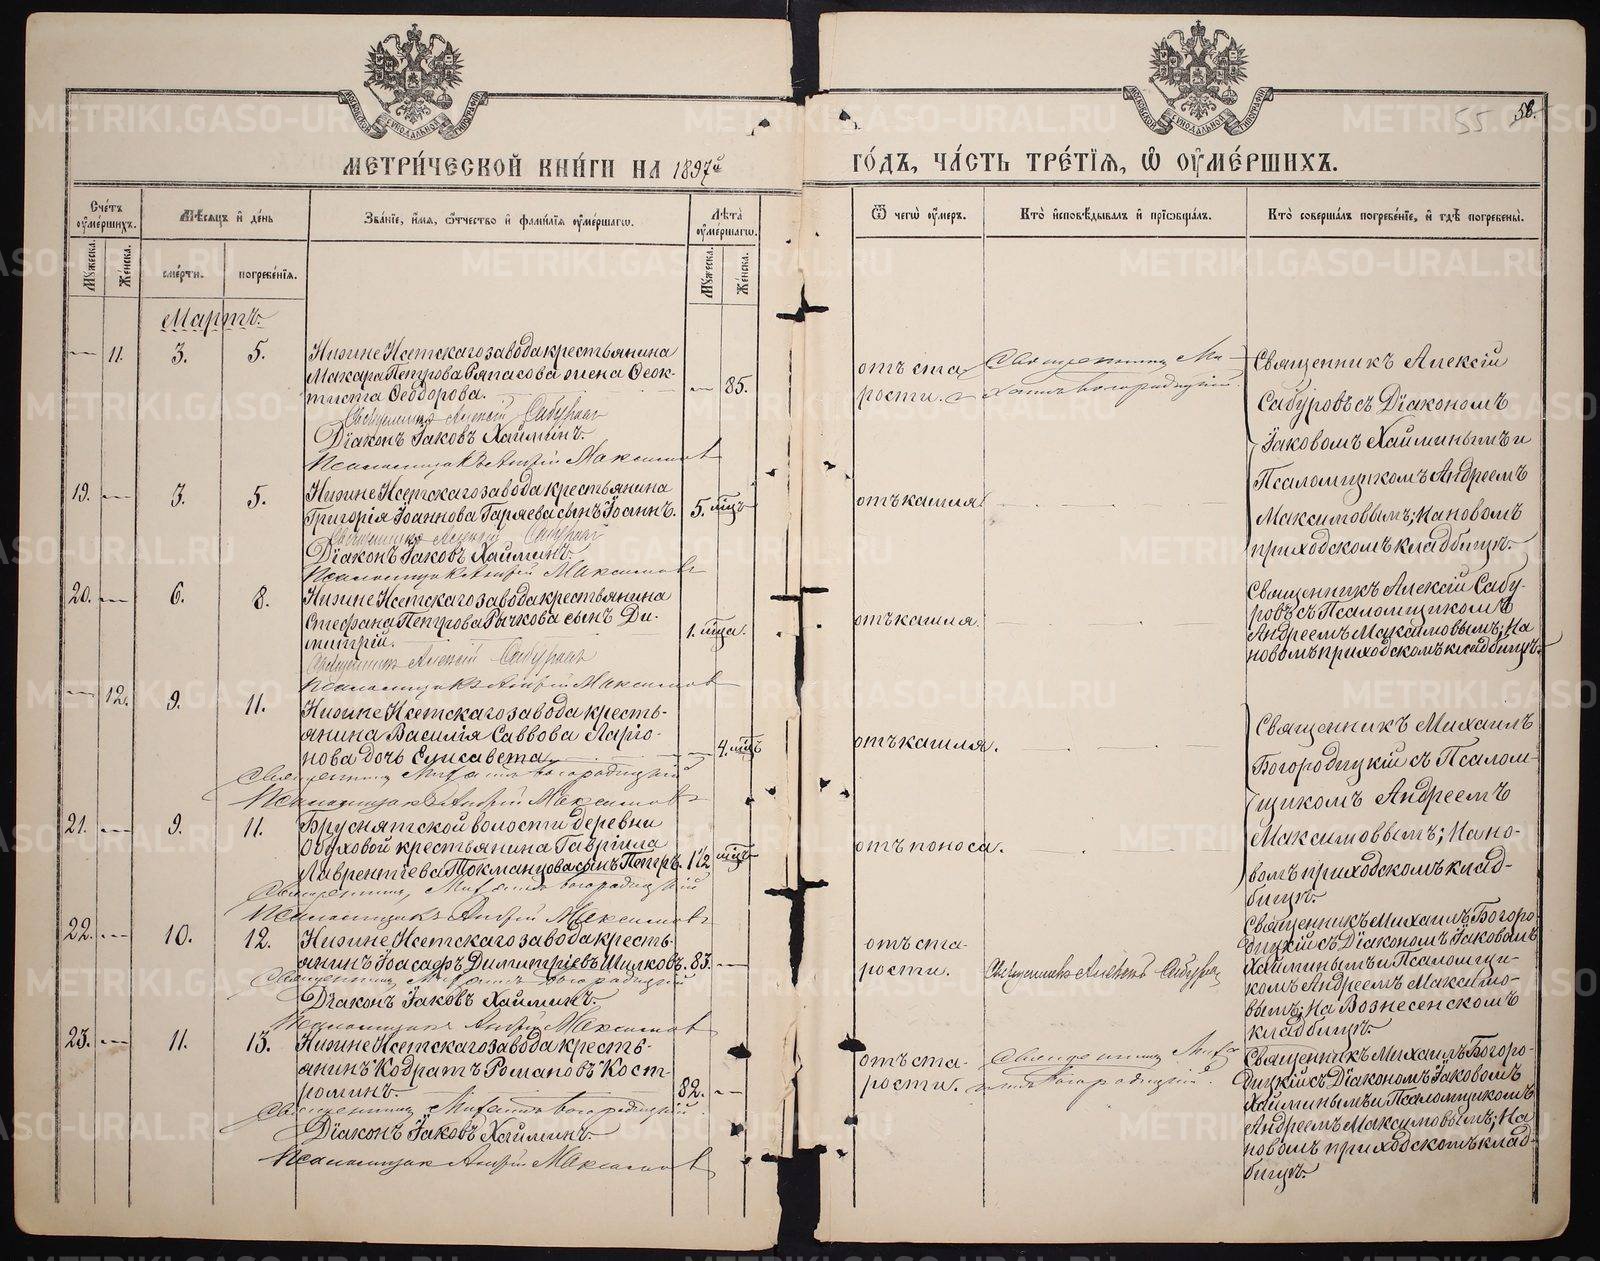 МЕТРИЧЕСКОЙ КНИГИ НА 1897й
ГОДЪ, ЧАСТЬ ТРЕТІЯ, Ѽ ОУМЕРШИХЪ.
55 58.
Счетъ оумершихъ.
Мужеска.
Женска.
Мѣсяцъ и день
смерти.
погребенїя.
Званїе, имя, ѻтчество и фамилїя оумершагѡ.
Лѣта оумершагѡ.
Мужеска.
Женска.
Ѿ чегѡ оумеръ.
Кто исповѣдывалъ и прїобщалъ.
Кто совершалъ погребенїе, и гдѣ погребены.
Мартъ.
11. 3. 5.
Нижне Исетскаго завода крестьянина
Макара Петрова Ряпасова жена Ѳеок-
тиста Ѳеодорова. 85.
Священникъ Алексій Сабуровъ
Діаконъ Іаковъ Хайминъ.
Псаломщикъ Андрей Максимовъ
отъ ста-
рости.
Священникъ Ми-
хаилъ Богородицкій.
Священникъ Алексій
Сабуровъ съ Діакономъ
Іаковомъ Хайминымъ и
Псаломщикомъ Андреемъ
Максимовымъ; На новомъ
приходскомъ кладбищѣ.
19. 3. 5.
Нижне Исетскаго завода крестьянина
Григорія Іоаннова Гаряева сынъ Іоаннъ. 5. мцъ
Священникъ Алексій Сабуровъ
Діаконъ Іаковъ Хайминъ.
Псаломщикъ Андрей Максимовъ
отъ кашля.
20. 6. 8.
Нижне Исетскаго завода крестьянина
Стефана Петрова Рычкова сынъ Ди-
митрій. 1. мца.
Священникъ Алексій Сабуровъ
Псаломщикъ Андрей Максимовъ
отъ кашля.
Священникъ Алексій Сабу-
ровъ съ Псаломщикомъ
Андреемъ Максимовымъ; На
новомъ приходскомъ кладбищѣ.
12. 9. 11.
Нижне Исетскаго завода кресть-
янина Василія Саввова Ларіо-
нова дочь Елисавета. 4. мцъ
Священникъ Михаилъ Богородицкій
Псаломщикъ Андрей Максимовъ
отъ кашля.
Священникъ Михаилъ
Богородицкій съ Псалом-
щикомъ Андреемъ
Максимовымъ; На но-
вомъ приходскомъ клад-
бищѣ.
21. 9. 11.
Бруснятской волости деревни
крестьянина Гавріила
Лаврентіева Токманцова сынъ Петръ. 1½ мцъ
Священникъ Михаилъ Богородицкій
Псаломщикъ Андрей Максимовъ
отъ поноса.
22. 10. 12.
Нижне Исетскаго завода кресть-
янинъ Іоасафъ Димитріевъ Шилковъ. 83.
Священникъ Михаилъ Богородицкій
Діаконъ Іаковъ Хайминъ.
Псаломщикъ Андрей Максимовъ
отъ ста-
рости.
Священникъ Алексій Сабуровъ
Священникъ Михаилъ Богоро-
дицкій съ Діакономъ Іаковомъ
Хайминымъ и Псаломщи-
комъ Андреемъ Максимо-
вымъ; На Вознесенскомъ
кладбищѣ.
23. 11. 13.
Нижне Исетскаго завода кресть-
янинъ Кодратъ Романовъ Кост-
роминъ. 82.
Священникъ Михаилъ Богородицкій
Діаконъ Іаковъ Хайминъ.
Псаломщикъ Андрей Максимовъ
отъ ста-
рости.
Священникъ Миха-
илъ Богородицкій.
Священникъ Михаилъ Богоро-
дицкій съ Діакономъ Іаковомъ
Хайминымъ и Псаломщикомъ
Андреемъ Максимовымъ; На
новомъ приходскомъ клад-
бищѣ.
METRIKI.GASO-URAL.RU